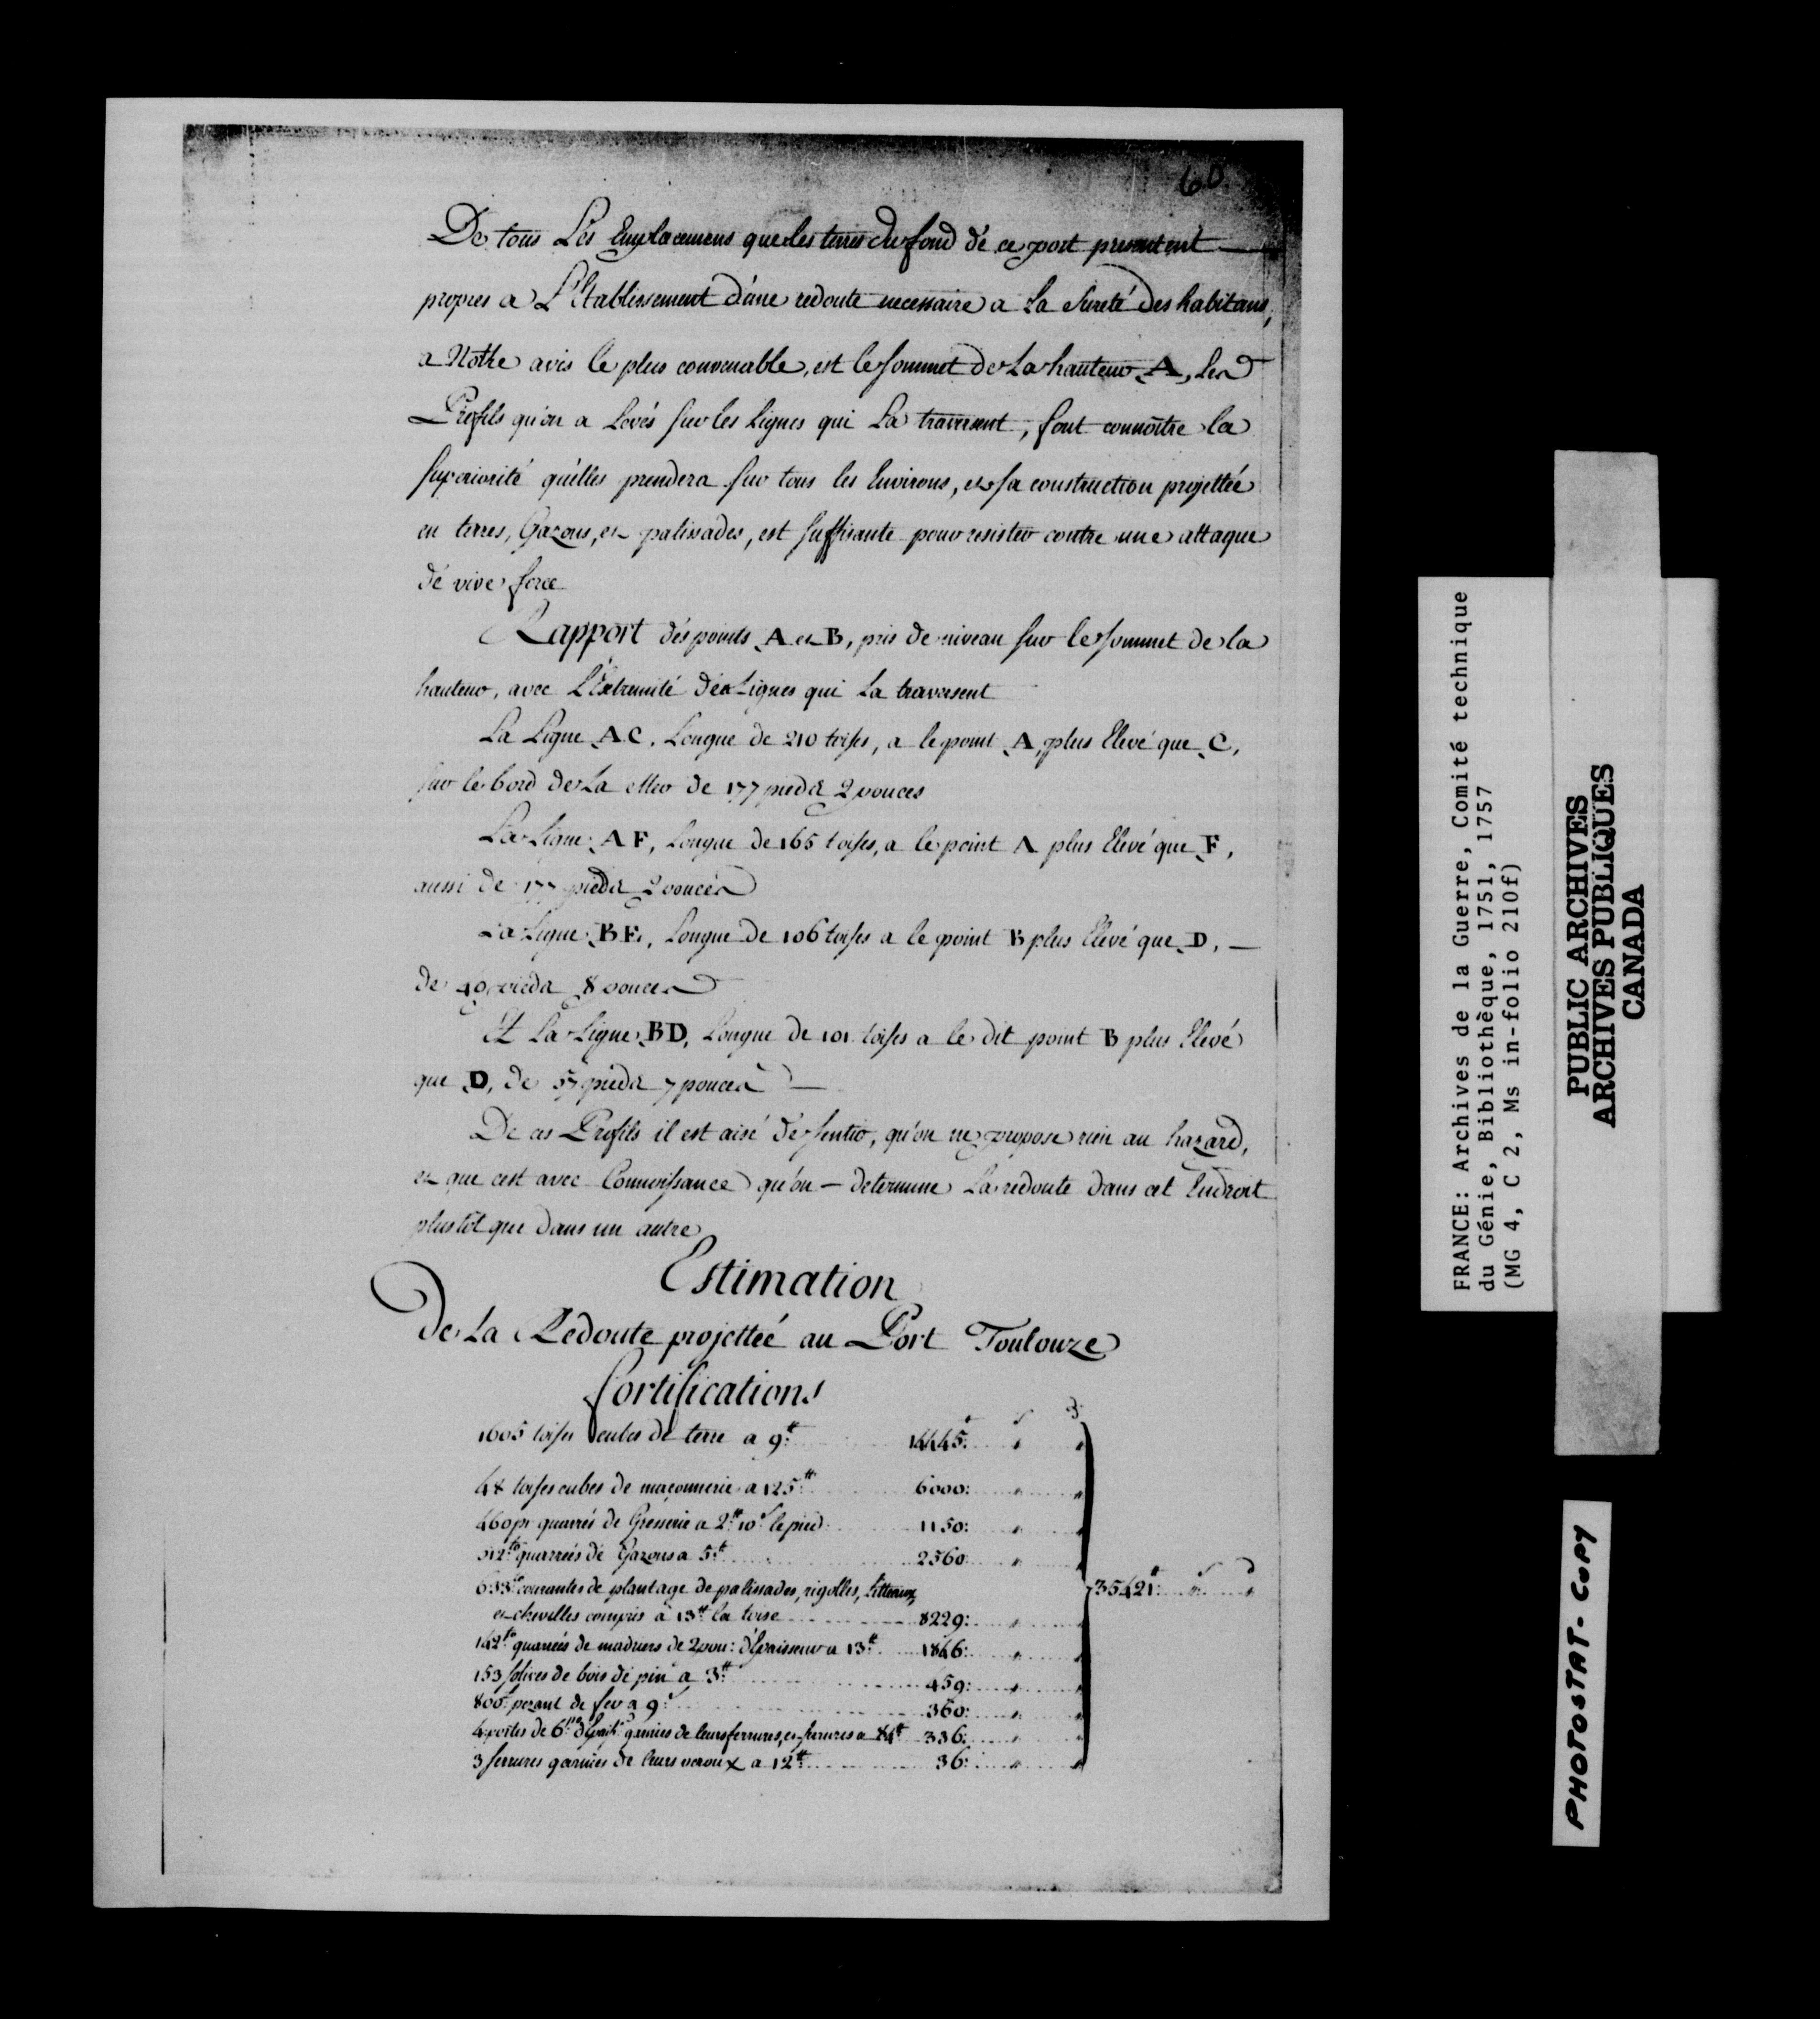 60
De tous Les Emplacemens que les terres du fond de ce port presentent
propres a L'Etablissement d'une redoute necessaire a La Sureté Des habitans,
a Notre avis le plus convenable, est le sommet de La hauteur A, les
Profils qu'on a Levés sur les Lignes qui La traversent, font connoître la
superiorité qu'elles prendera sur tous les Environs, et sa construction projettée
en terres, Gazons, et palissades, est suffisante pour resister contre une attaque
de vive force
Rapport des points A et B, pris de niveau sur le sommet de la
hauteur, avec L'Extremité des Lignes qui La traversent
La Ligne AC, Longue de 210 toises, a le point A, plus Elevé que C,
sur le bord de La Mer de 177 pieds 2 pouces
La Ligne AF, Longue de 165 toises, a le point A plus Elevé que F,
aussi de 177 pieds 2 pouces
La Ligne BE, Longue de 106 toises a le point B plus Elevé que D,
de 40 pieds 8 pouces
Et La Ligne BD, Longue de 101 toises a le dit point B plus Elevé
que D, de 57 pieds 7 pouces
De ces Profils il est aisé de sentir, qu'on ne propose rien au hazard,
et que cest avec Connoissance qu'on determine La redoute dans cet Endroit
plustôt que dans un autre
Estimation
De La Redoute projettée au Port Toulouze
Fortifications
1605 toises cubes de terre a 9.tt 14445:
48 toises cubes de maçonnerie a 125.tt 6000:
460 pi quarrés de Gresserie a 2.tt 10.s le pied 1150:
512.to quarrées de Gazons a 5.tt 2560
633.to courantes de plantage de palissades, rigolles, Litteaux,
et chevilles compris a 13.tt la toise 8229:
142.to quarrées de madriers de 2 pou: d'Epaisseur a 13.tt 1846:
153 solives de bois de pin a 3.tt 459:
800.l pezant de fer a 9.s 360:
4 portes de 6.po d'Epaiss garnies de leurs ferrures, et serrures a 84.tt 336:
3 serrures garnies de leurs veroux a 12.tt 36:
35421.tt s d
FRANCE: Archives de la Guerre, Comité technique
du Génie, Bibliothèque, 1751, 1757
(MG 4, C 2, Ms in-folio 210f)
PUBLIC ARCHIVES
ARCHIVES PUBLIQUES
CANADA
PHOTOSTAT-COPY